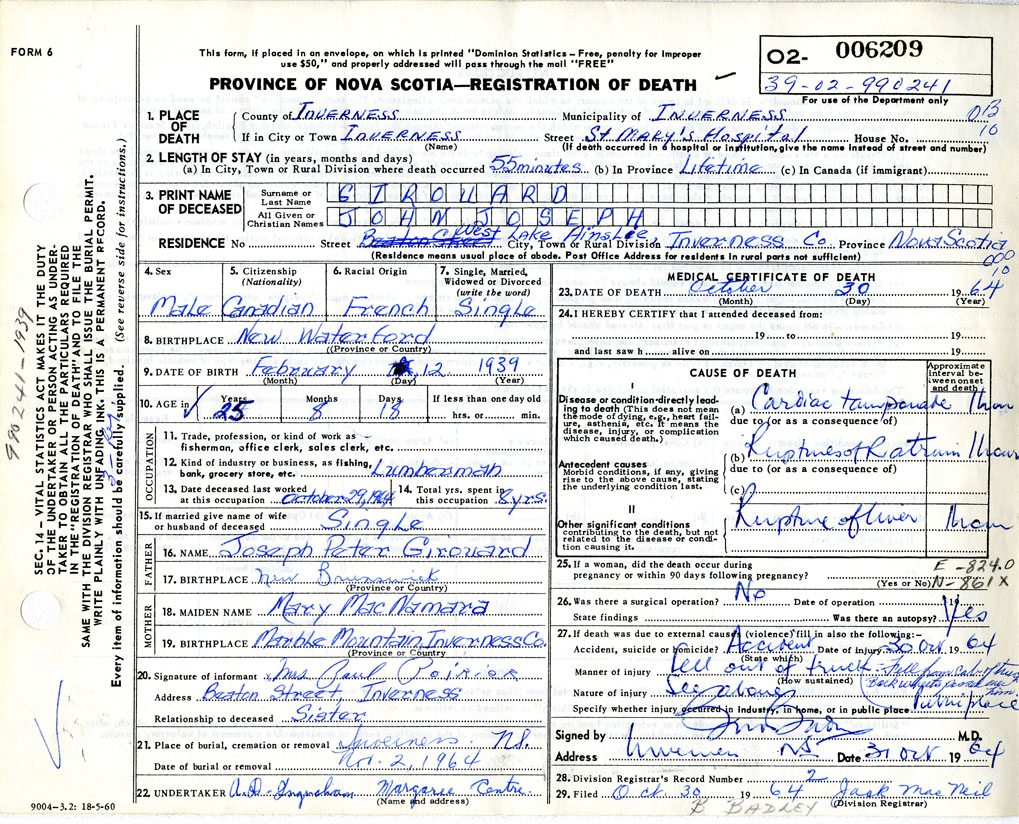 FORM 6
This form, if placed in an envelope, on which is printed "Dominion Statistics – Free, penalty for improper
use $50," and properly addressed will pass through the mail "FREE"
O2- 006209
39-02-990241
For use of the Department only
PROVINCE OF NOVA SCOTIA—REGISTRATION OF DEATH
1. PLACE OF DEATH
County of INVERNESS Municipality of INVERNESS 013
10
If in City or Town INVERNESS Street St MARY'S Hospital House No.
(Name) (If death occurred in a hospital or institution, give the name instead of street and number)
2. LENGTH OF STAY (in years, months and days)
(a) In City, Town or Rural Division where death occurred 55 minutes (b) In Province Lifetime (c) In Canada (if immigrant)
3. PRINT NAME OF DECEASED
Surname or Last Name GIROUARD
All Given or Christian Names JOHN JOSEPH
RESIDENCE No Street West Lake Ainslee City, Town or Rural Division Inverness Co Province Nova Scotia
(Residence means usual place of abode. Post Office Address for residents in rural parts not sufficient)
000
10
4. Sex Male
5. Citizenship (Nationality) Canadian
6. Racial Origin French
7. Single, Married, Widowed or Divorced (write the word) Single
8. BIRTHPLACE New Waterford
(Province or Country)
9. DATE OF BIRTH February 12, 1939
(Month) (Day) (Year)
10. AGE in Years 25 Months 8 Days 18 If less than one day old
hrs. or min.
OCCUPATION
11. Trade, profession, or kind of work as –
fisherman, office clerk, sales clerk, etc.
12. Kind of industry or business, as fishing,
bank, grocery store, etc. Lumberman
13. Date deceased last worked at this occupation October 29, 1964 14. Total yrs. spent in this occupation 8 yrs.
15. If married give name of wife
or husband of deceased Single
FATHER
16. NAME Joseph Peter Girouard
17. BIRTHPLACE New Brunswick
(Province or Country)
MOTHER
18. MAIDEN NAME Mary MacNamara
19. BIRTHPLACE Marble Mountain, Inverness Co.
(Province or Country)
20. Signature of informant Mrs Paul Poirier
Address Beaton Street, Inverness
Relationship to deceased Sister
21. Place of burial, cremation or removal Inverness NS.
Date of burial or removal Nov. 2, 1964
22. UNDERTAKER Margaree Centre.
(Name and address)
MEDICAL CERTIFICATE OF DEATH
23. DATE OF DEATH October 30 1964
(Month) (Day) (Year)
24. I HEREBY CERTIFY that I attended deceased from:
19 to 19
and last saw h alive on 19
CAUSE OF DEATH
Approximate interval between onset and death
I
Disease or condition directly leading to death (This does not mean the mode of dying, e.g., heart failure, asthenia, etc. It means the disease, injury, or complication which caused death.)
(a) Cardiac tamponade 1 hour
due to (or as a consequence of)
Antecedent causes
Morbid conditions, if any, giving rise to the above cause, stating the underlying condition last.
(b) Rupture of Rt atrium 1 hour
due to (or as a consequence of)
(c)
II
Other significant conditions contributing to the death, but not related to the disease or condition causing it.
Rupture of liver 1 hour
25. If a woman, did the death occur during
pregnancy or within 90 days following pregnancy?
(Yes or No)
E-824.0
N-861X
26. Was there a surgical operation? No Date of operation 19
State findings Was there an autopsy? Yes
27. If death was due to external causes (violence) fill in also the following:–
Accident, suicide or homicide? Accident Date of injury 30 Oct 1964
(State which)
Manner of injury Fell out of truck
(How sustained)
Nature of injury See above
Specify whether injury occurred in industry, in home, or in public place Public place
Signed by M.D.
Address Inverness NS Date 31 Oct 1964
28. Division Registrar's Record Number 2
29. Filed Oct. 30 1964 Jack MacNeil
(Division Registrar)
B BADLEY
9004–3.2: 18-5-60
SEC. 14 – VITAL STATISTICS ACT MAKES IT THE DUTY
OF THE UNDERTAKER OR PERSON ACTING AS UNDER-
TAKER TO OBTAIN ALL THE PARTICULARS REQUIRED
IN THE "REGISTRATION OF DEATH" AND TO FILE THE
SAME WITH THE DIVISION REGISTRAR WHO SHALL ISSUE THE BURIAL PERMIT.
WRITE PLAINLY WITH UNFADING INK. THIS IS A PERMANENT RECORD.
Every item of information should be carefully supplied. (See reverse side for instructions.)
990241-1939